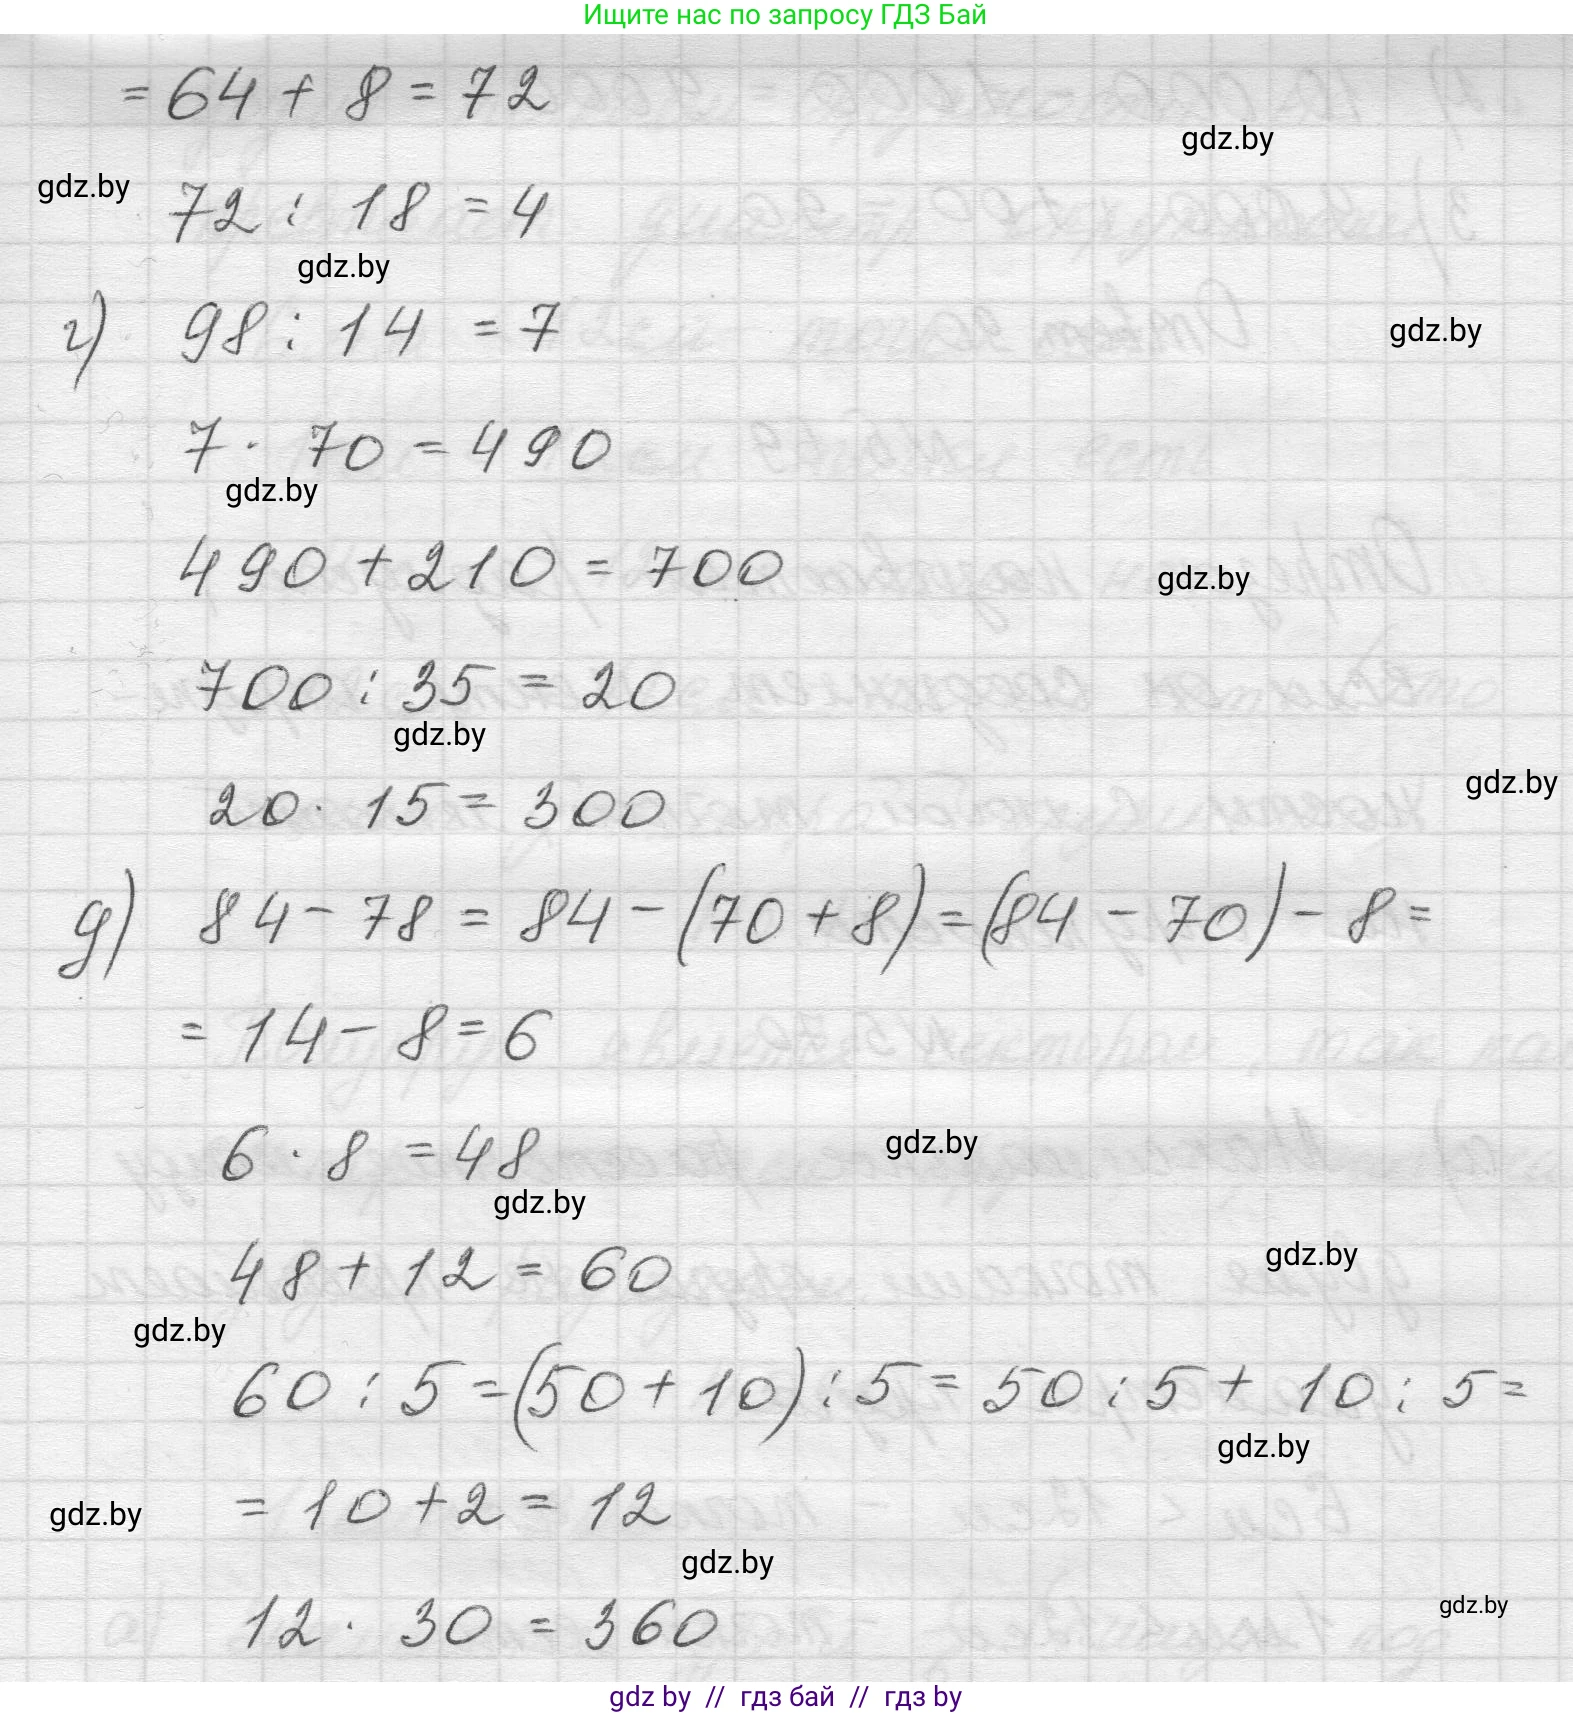 Ищите нас по запросу ГДЗ Бай
= 64 + 8 = 72
gdz.by
gdz.by
72 : 18 = 4
gdz.by
г) 98 : 14 = 7
gdz.by
7 · 70 = 490
gdz.by
490 + 210 = 700
gdz.by
700 : 35 = 20
gdz.by
gdz.by
20 · 15 = 300
д) 84 - 78 = 84 - (70 + 8) = (84 - 70) - 8 =
= 14 - 8 = 6
6 · 8 = 48
gdz.by
gdz.by
gdz.by
48 + 12 = 60
gdz.by
60 : 5 = (50 + 10) : 5 = 50 : 5 + 10 : 5 =
gdz.by
= 10 + 2 = 12
gdz.by
gdz.by
gdz.by
12 · 30 = 360
gdz by // гдз бай // gdz by